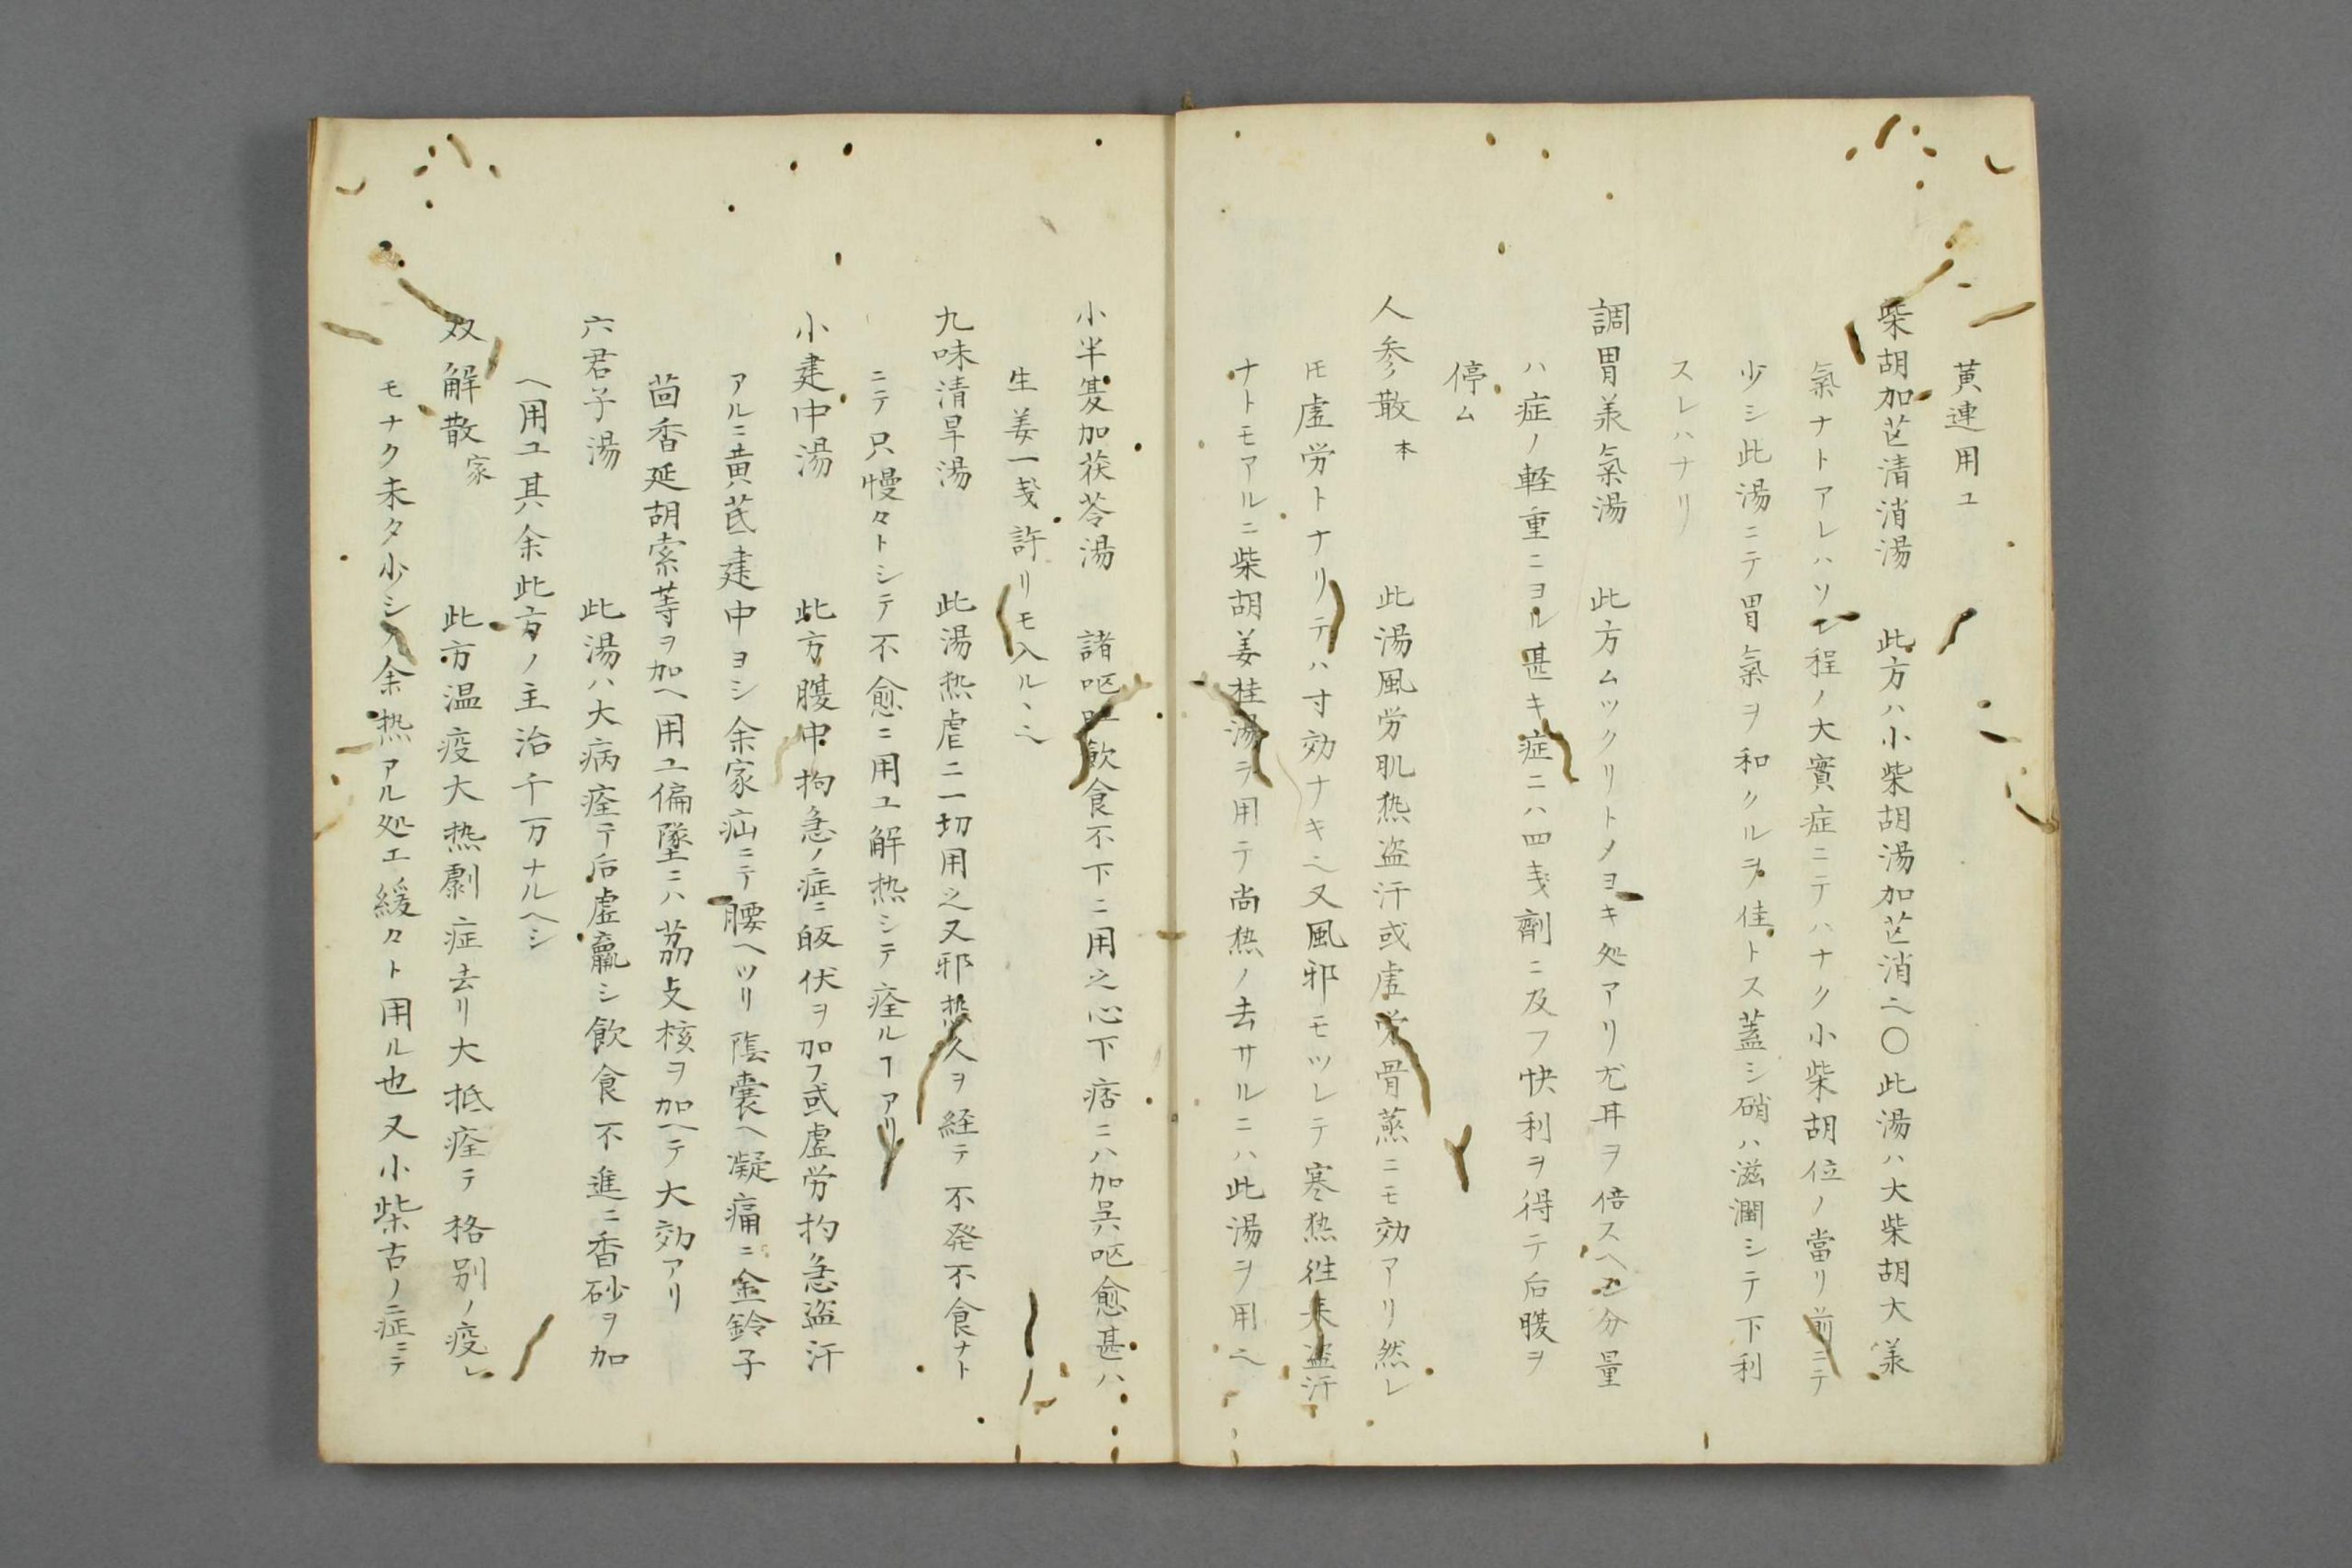 黄連用ユ
柴胡加芒清消湯　此方ハ小柴胡湯加芒消ニ〇此湯ハ大柴胡大羕
氣ナトアレハソレ程ノ大實症ニテハナク小柴胡位ノ當リ前ニテ
少シ此湯ニテ胃氣ヲ和クルヲ佳トス蓋シ硝ハ滋潤シテ下利
スレハナリ
調胃羕氣湯　此方ムツクリトメヨキ処アリ尤甘ヲ倍スヘシ分量
ハ症ノ軽重ニヨル甚キ症ニハ四戔劑ニ及フ快利ヲ得テ后服ヲ
停ム
人参散本　此湯風労肌热盗汗或虚労骨蒸ニモ効アリ然レ
𪜈虚労トナリテハ寸効ナキ也又風邪モツレテ寒热往来盗汗
ナトモアルニ柴胡姜桂湯ヲ用テ尚热ノ去サルニハ此湯ヲ用也
小半夏加茯苓湯　諸嘔吐飲食不下ニ用之心下痞ニハ加呉嘔愈甚ハ
生姜一戔許リモ入ルヽ也
九味清旱湯　此湯热虐ニ一切用之又邪热久ヲ経テ不発不食ナト
ニテ只慢々トシテ不愈ニ用ユ解热シテ痊ルヿアリ
小建中湯　此方腹中拘急ノ症ニ皈伏ヲ加フ或虚労拘急盗汗
アルニ黄芪建中ヨシ余家疝ニテ腰ヘツリ陰嚢ヘ凝痛ニ金鈴子
茴香延胡索等ヲ加ヘ用ユ偏墜ニハ茘支核ヲ加ヘテ大効アリ
六君子湯　此湯ハ大病痊テ后虚羸シ飲食不進ニ香砂ヲ加
ヘ用ユ其余此方ノ主治千万ナルヘシ
双解散家　此方温疫大热劇症去リ大抵痊テ格別ノ疫レ
モナク未タ少シノ余热アル処エ緩々ト用ル也又小柴古ノ症ニテ